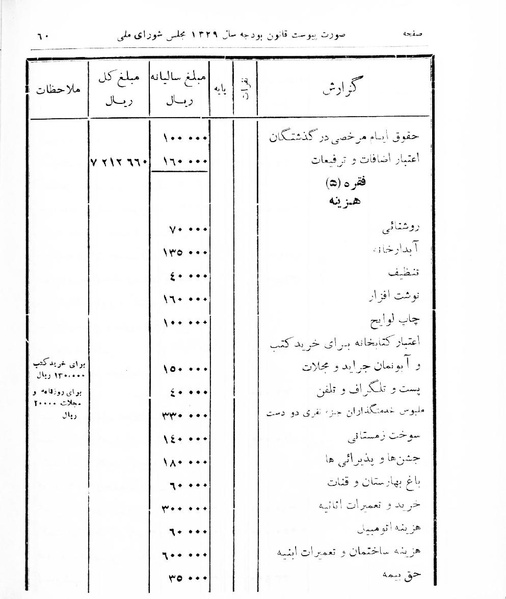 صفحه صورت پیوست قانون بودجه سال ۱۳۲۹ مجلس شورای ملی ۶۰
گزارش نفرات پایه مبلغ سالیانه ریال مبلغ کل ریال ملاحظات
حقوق ایام مرخصی درگذشتگان ۱۰۰ ۰۰۰
اعتبار اضافات و ترفیعات ۱۶۰ ۰۰۰ ۷ ۲۱۲ ۶۶۰
فقره (۵)
هزینه
روشنائی ۷۰ ۰۰۰
آبدارخانه ۱۳۵ ۰۰۰
تنظیف ۴۰ ۰۰۰
نوشت افزار ۱۶۰ ۰۰۰
چاپ لوایح ۱۰۰ ۰۰۰
اعتبار کتابخانه برای خرید کتب
و آبونمان جراید و مجلات ۱۵۰ ۰۰۰
برای خرید کتب
۱۳۰،۰۰۰ ریال
برای روزنامه و
مجلات ۲۰۰۰۰
ریال
پست و تلگراف و تلفن ۴۰ ۰۰۰
ملبوس خدمتگذاران جزء نفری دو دست ۳۳۰ ۰۰۰
سوخت زمستانی ۱۴۰ ۰۰۰
جشن‌ها و پذیرائی ها ۱۸۰ ۰۰۰
باغ بهارستان و قنات ۶۰ ۰۰۰
خرید و تعمیرات اثاثیه ۳۰۰ ۰۰۰
هزینه اتومبیل ۶۰ ۰۰۰
هزینه ساختمان و تعمیرات ابنیه ۶۰۰ ۰۰۰
حق بیمه ۳۵ ۰۰۰